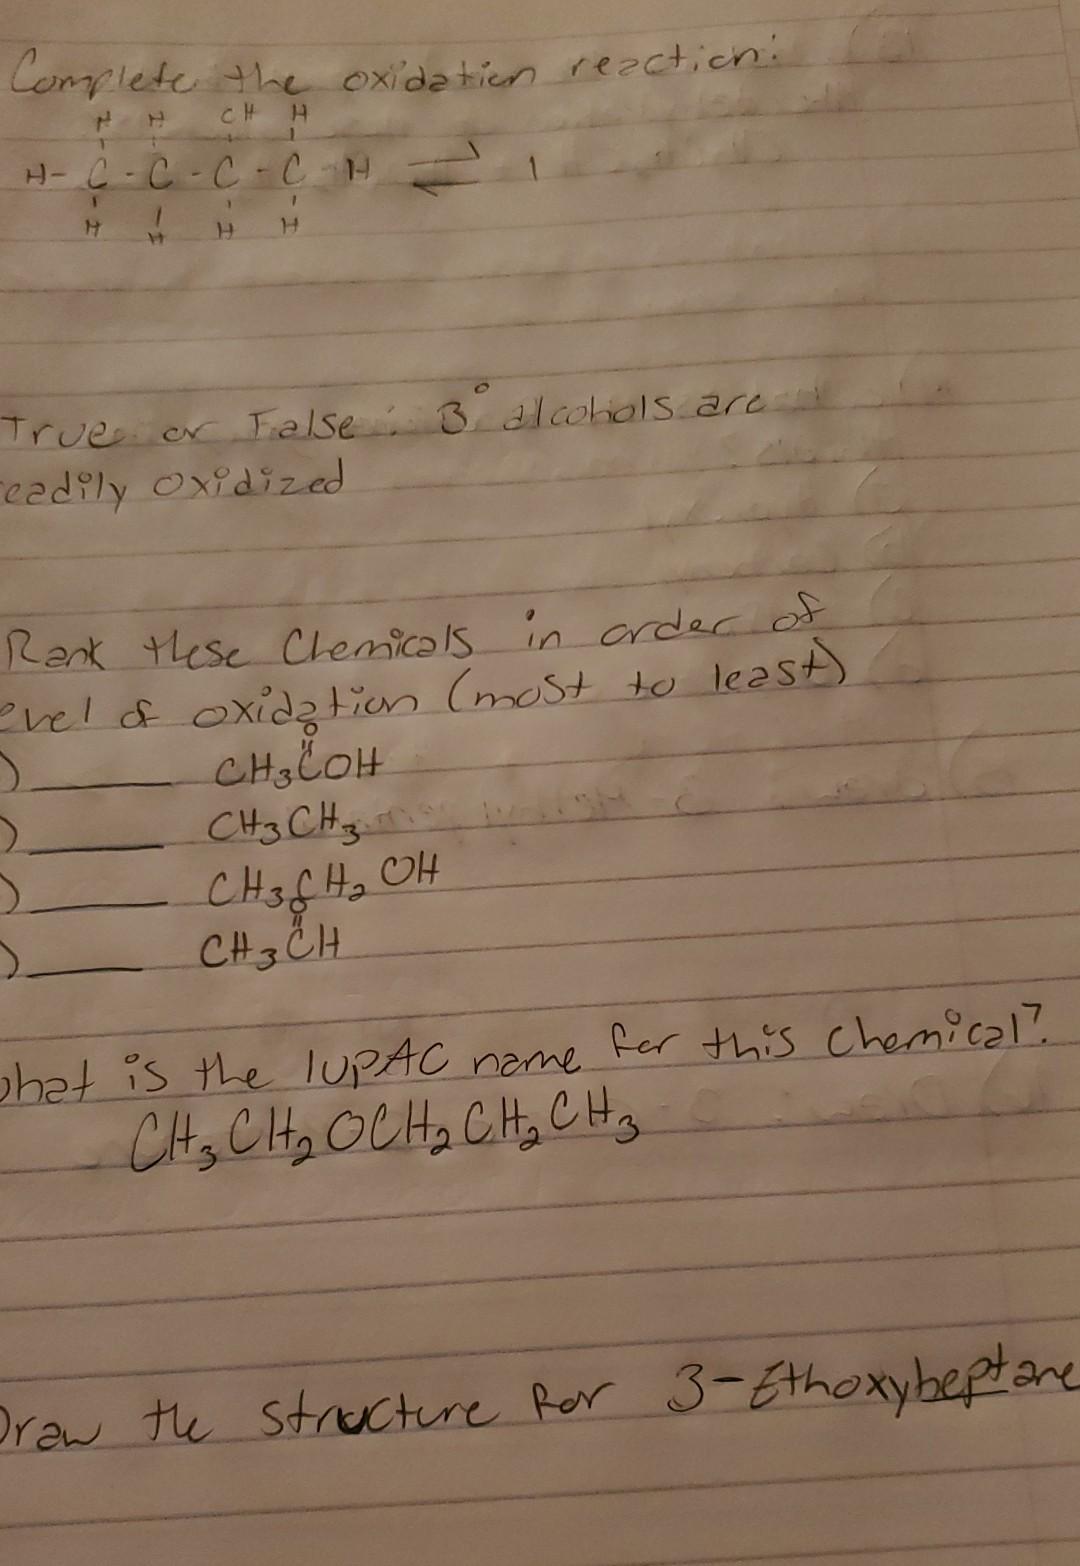 Complete the oxidation reaction:
H H OH H
H- C - C - C - C - H ⇌
H H H H
True or False : 3° alcohols are
eadily oxidized
Rank these Chemicals in order of
evel of oxidation (most to least)
O
) ______ CH₃COH
) ______ CH₃CH₃
) ______ CH₃CH₂OH
O
) ______ CH₃CH
hat is the IUPAC name for this chemical?
CH₃CH₂OCH₂CH₂CH₃
Draw the structure for 3-Ethoxyheptane